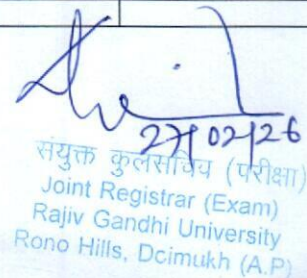 27/02/26
संयुक्त कुलसचिव (परीक्षा)
Joint Registrar (Exam)
Rajiv Gandhi University
Rono Hills, Dcimukh (A.P)